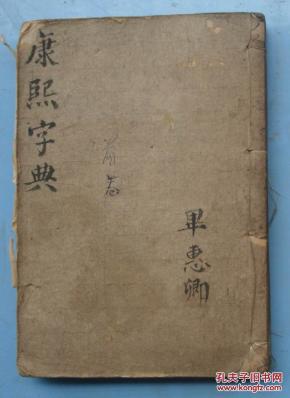 康熙字典
畢惠卿
孔夫子旧书网